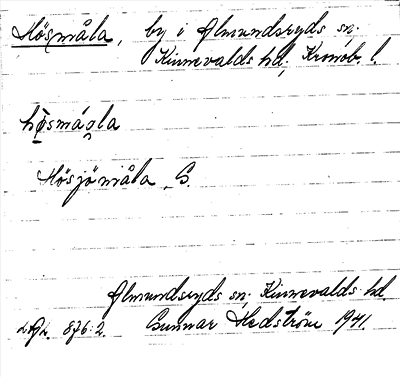 Hösmåla, by i Almundsryds sn;
Kinnevalds hd; Kronob. l.
hösmåola
Hösjömåla, G.
Almundsryds sn; Kinnevalds hd
876:2. Gunnar Hedström 1941.